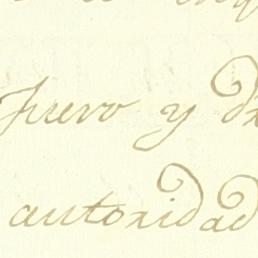 fuero y dr
autoridad